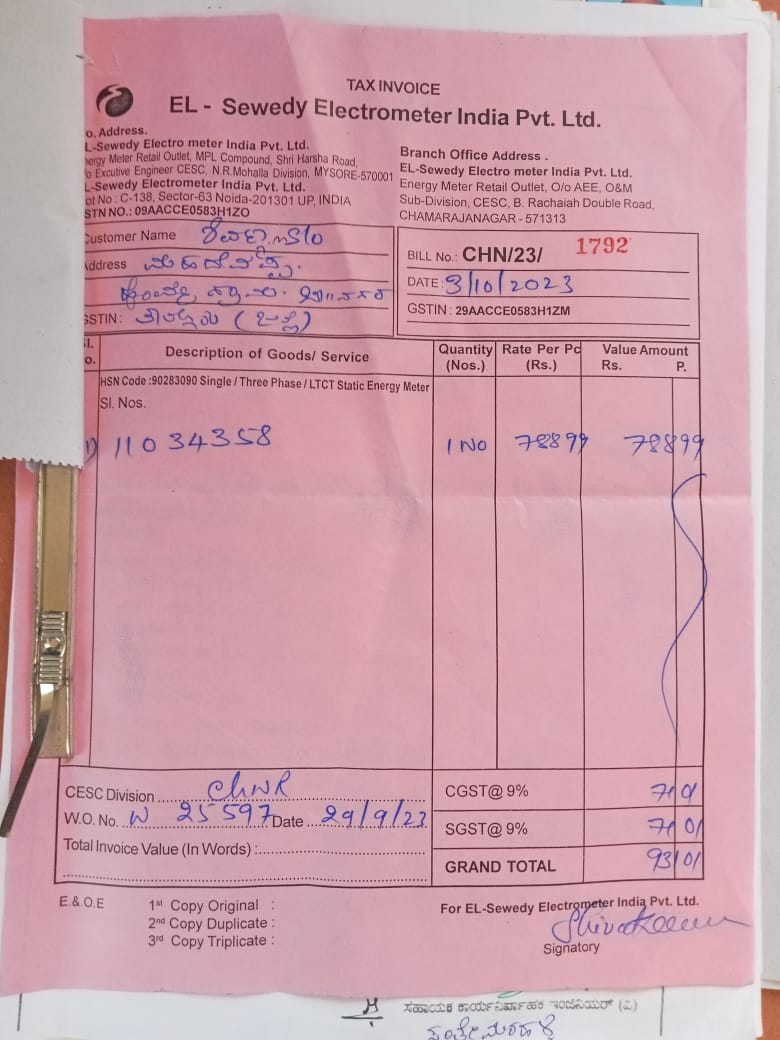 TAX INVOICE
EL - Sewedy Electrometer India Pvt. Ltd.
o. Address.
L-Sewedy Electro meter India Pvt. Ltd.
nergy Meter Retail Outlet, MPL Compound, Shri Harsha Road,
o Excutive Engineer CESC, N.R.Mohalla Division, MYSORE-570001
L-Sewedy Electrometer India Pvt. Ltd.
ot No : C-138, Sector-63 Noida-201301 UP, INDIA
STN NO.: 09AACCE0583H1ZO
Branch Office Address .
EL-Sewedy Electro meter India Pvt. Ltd.
Energy Meter Retail Outlet, O/o AEE, O&M
Sub-Division, CESC, B. Rachaiah Double Road,
CHAMARAJANAGAR - 571313
Customer Name S/o
Address
GSTIN:
BILL No.: CHN/23/ 1792
DATE: 3/10/2023
GSTIN : 29AACCE0583H1ZM
Sl. No. Description of Goods/ Service Quantity (Nos.) Rate Per Pc (Rs.) Value Amount Rs. P.
HSN Code :90283090 Single / Three Phase / LTCT Static Energy Meter
Sl. Nos.
1) 11034358 1 NO 78899 78899
CESC Division CHNR CGST@ 9%
W.O. No. W 25597 Date 29/9/23 SGST@ 9% 71 01
Total Invoice Value (In Words) : GRAND TOTAL 931 01
E.& O.E 1st Copy Original :
2nd Copy Duplicate :
3rd Copy Triplicate :
For EL-Sewedy Electrometer India Pvt. Ltd.
Signatory
ಸಹಾಯಕ ಕಾರ್ಯನಿರ್ವಾಹಕ ಇಂಜಿನಿಯರ್ (ವಿ)